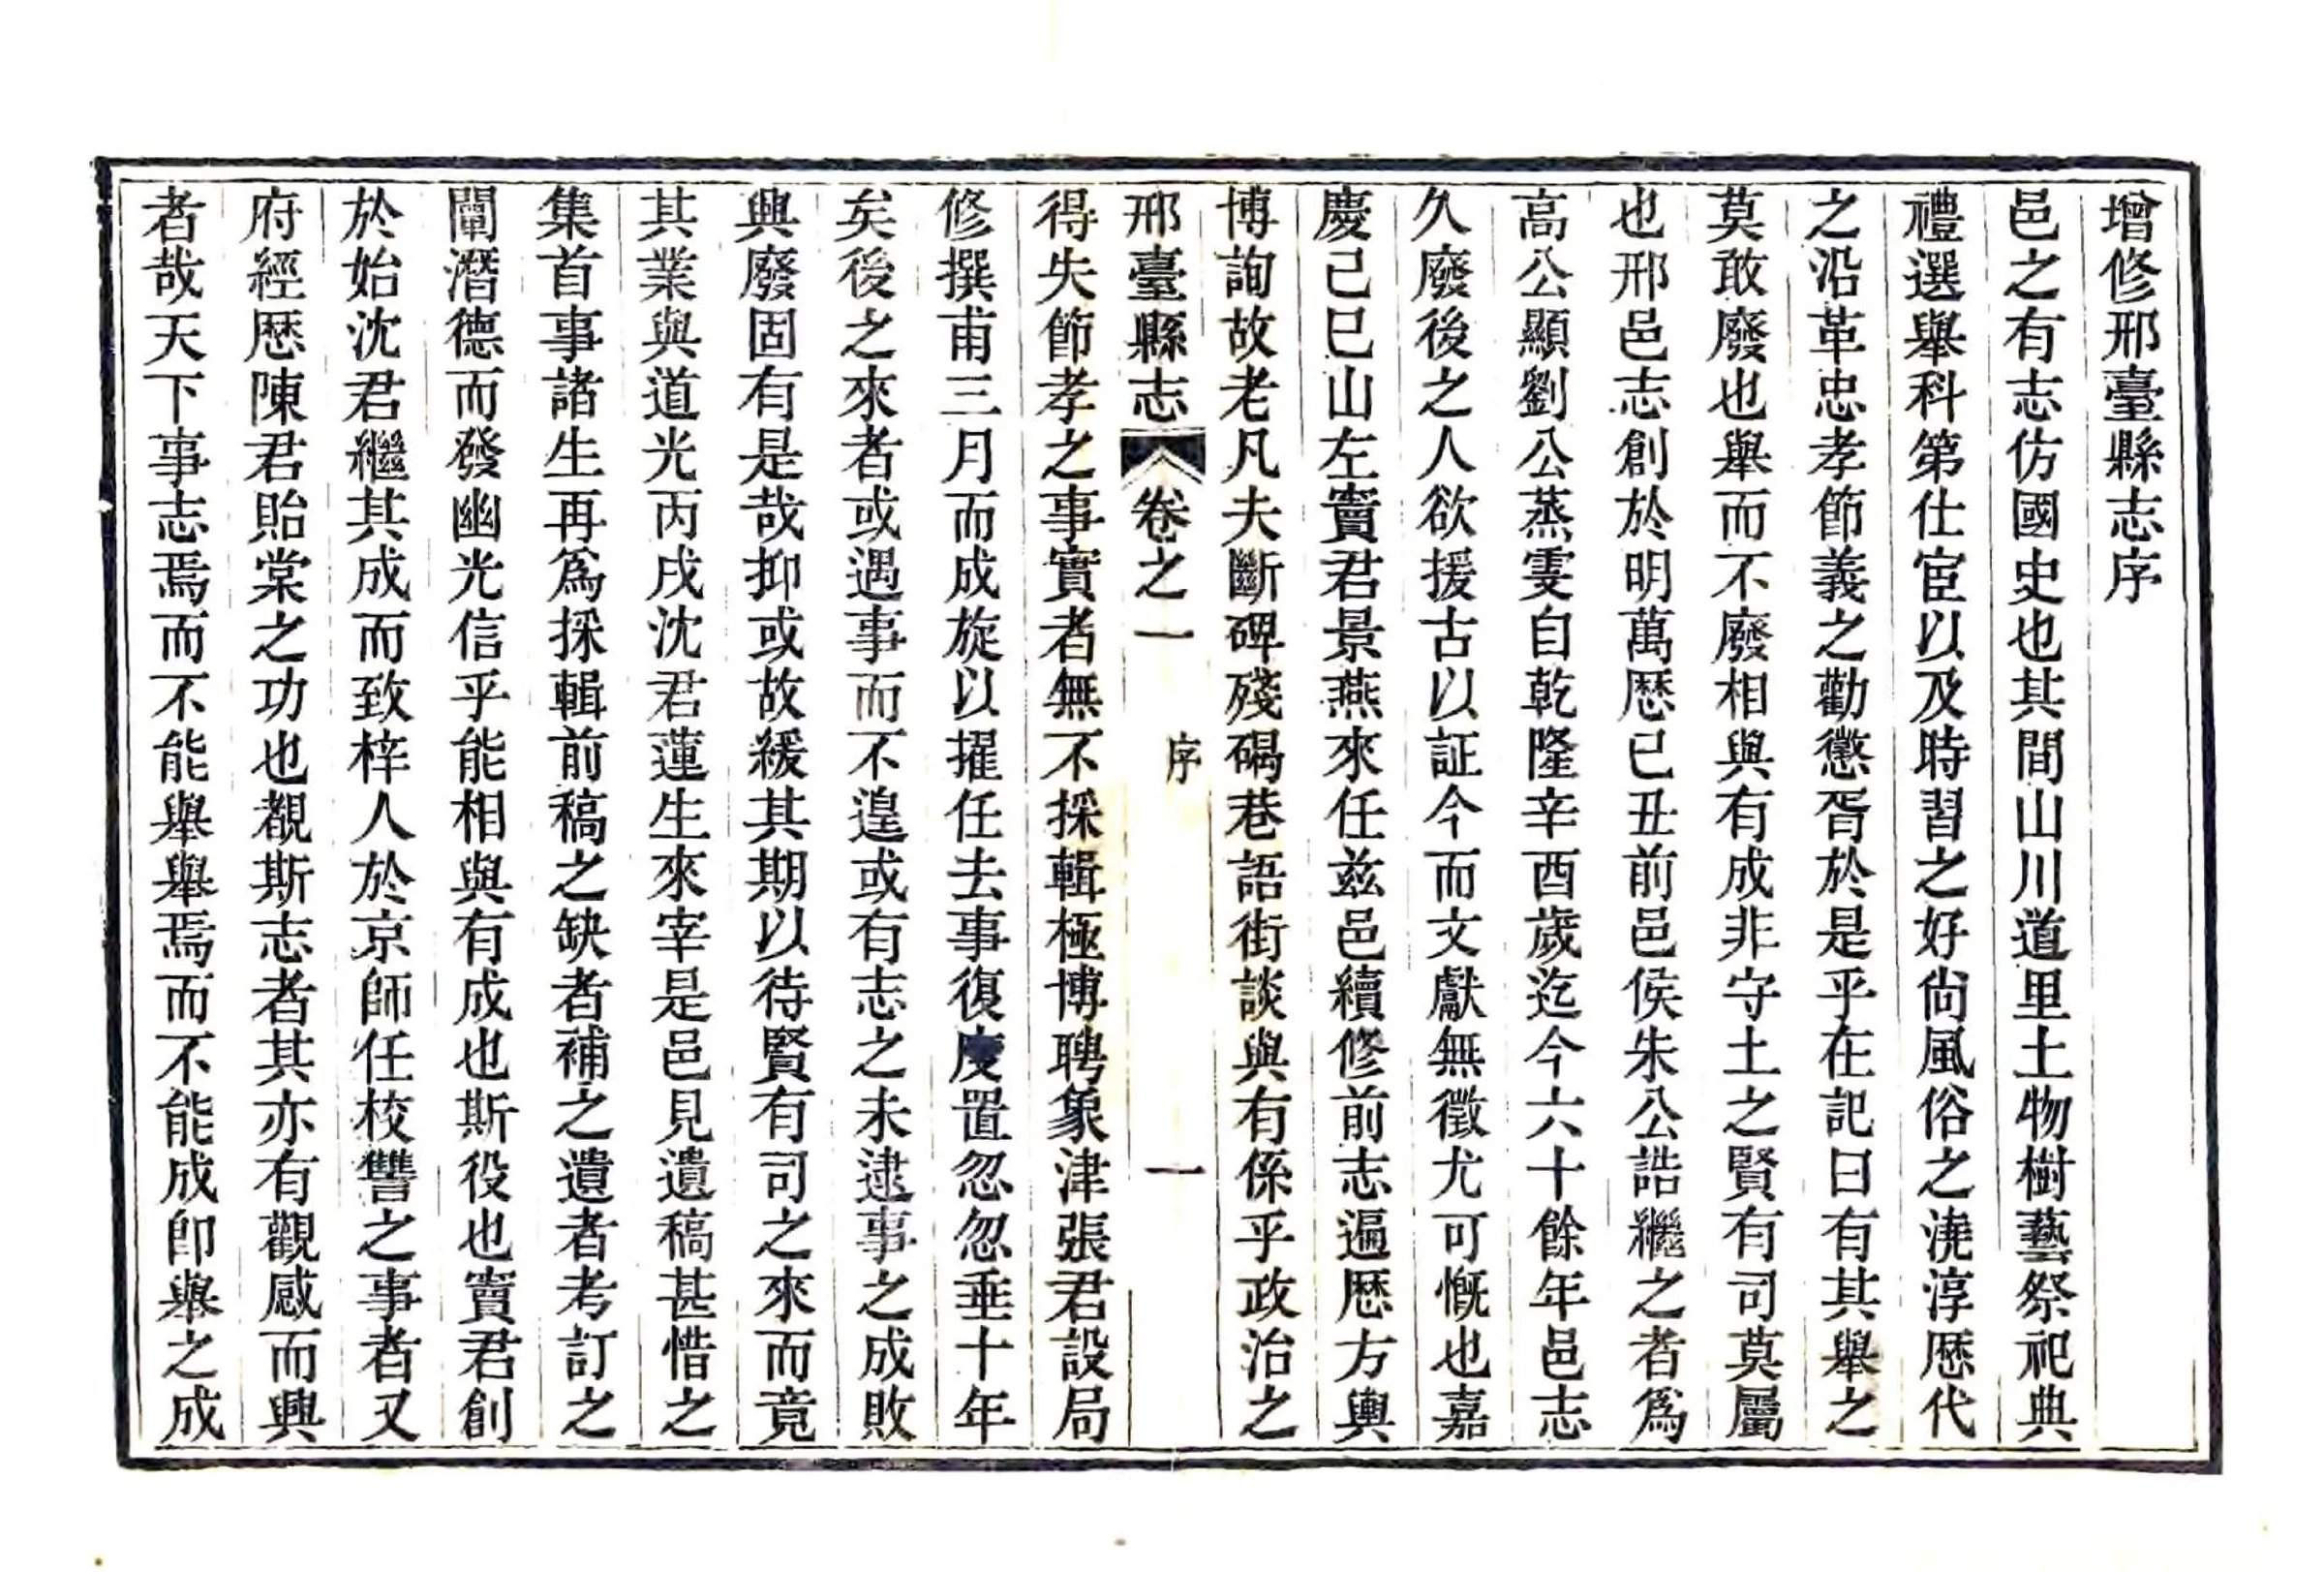 增修邢臺縣志序
邑之有志仿國史也其間山川道里土物樹藝祭祀典
禮選舉科第仕宦以及時習之好尙風俗之澆淳厯代
之沿革忠孝節義之勸懲胥於是乎在記曰有其舉之
莫敢廢也舉而不廢相與有成非守土之賢有司莫屬
也邢邑志創於明萬厯已丑前邑侯朱公誥繼之者爲
高公顯劉公蒸雯自乾隆辛酉歲迄今六十餘年邑志
久廢後之人欲援古以証今而文獻無徵尤可慨也嘉
慶己巳山左竇君景燕來任茲邑續修前志遍厯方輿
博詢故老凡夫斷碑殘碣巷語街談與有係乎政治之
邢臺縣志 卷之一 序 一
得失節孝之事實者無不採輯極博聘象津張君設局
修撰甫三月而成旋以擢任去事復庋置忽忽垂十年
矣後之來者或遇事而不遑或有志之未逮事之成敗
興廢固有是哉抑或故緩其期以待賢有司之來而竟
其業與道光丙戌沈君蓮生來宰是邑見遺稿甚惜之
集首事諸生再爲採輯前稿之缺者補之遺者考訂之
闡潛德而發幽光信乎能相與有成也斯役也竇君創
於始沈君繼其成而致梓人於京師任校讐之事者又
府經厯陳君貽棠之功也覩斯志者其亦有觀感而興
者哉天下事志焉而不能舉舉焉而不能成卽舉之成